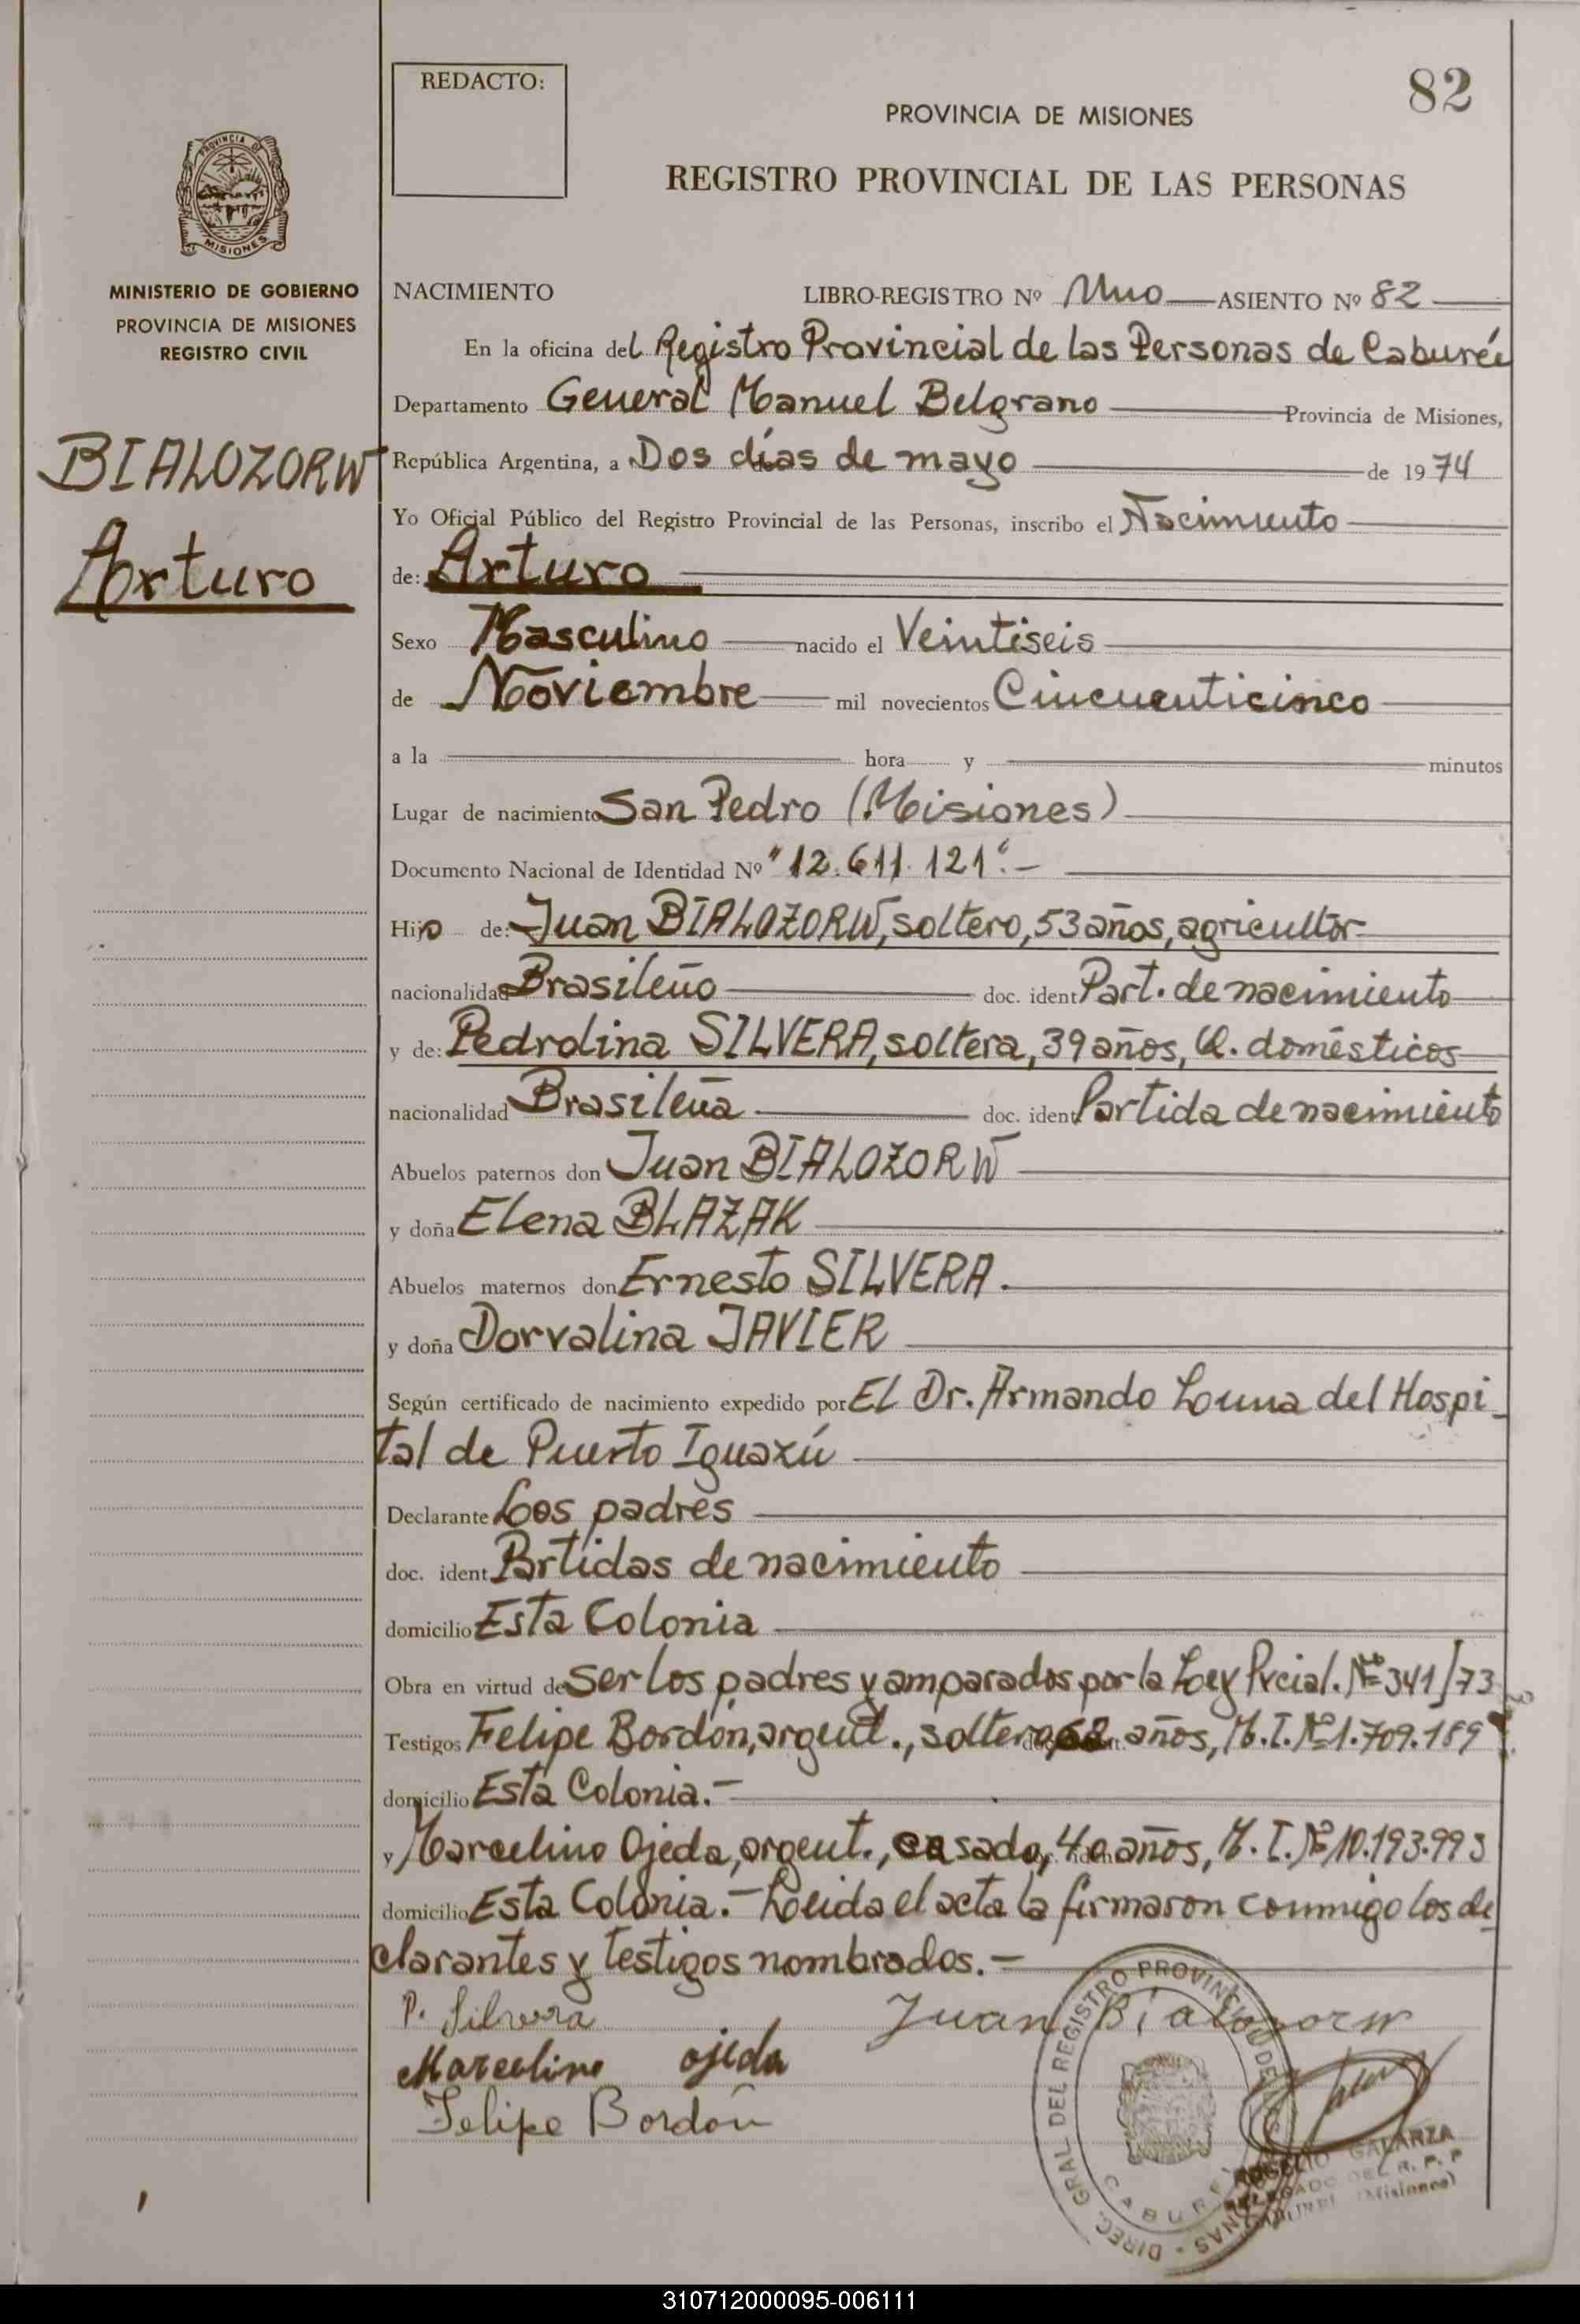 REDACTO:
82
PROVINCIA DE MISIONES
REGISTRO PROVINCIAL DE LAS PERSONAS
PROVINCIA DE
MISIONES
MINISTERIO DE GOBIERNO
PROVINCIA DE MISIONES
REGISTRO CIVIL
BIALOZORW
Arturo
NACIMIENTO LIBRO-REGISTRO Nº Uno ASIENTO Nº 82
En la oficina del Registro Provincial de las Personas de Caburéi
Departamento General Manuel Belgrano Provincia de Misiones,
República Argentina, a Dos días de mayo de 1974
Yo Oficial Público del Registro Provincial de las Personas, inscribo el Nacimiento
de: Arturo
Sexo Masculino nacido el Veintiseis
de Noviembre mil novecientos Cincuenticinco
a la hora y minutos
Lugar de nacimiento San Pedro (Misiones)
Documento Nacional de Identidad Nº "12.611.121".-
Hijo de: Juan BIALOZORW, soltero, 53 años, agricultor
nacionalidad Brasileño doc. ident Part. de nacimiento
y de: Pedrolina SILVERA, soltera, 39 años, Q. domésticos
nacionalidad Brasileña doc. ident Partida de nacimiento
Abuelos paternos don Juan BIALOZORW
y doña Elena BLAZAK
Abuelos maternos don Ernesto SILVERA.
y doña Dorvalina JAVIER
Según certificado de nacimiento expedido por El Dr. Armando Luna del Hospi-
tal de Puerto Iguazú
Declarante Los padres
doc. ident Partidas de nacimiento
domicilio Esta Colonia
Obra en virtud de Ser los padres y amparados por la Ley Prcial. Nº 341/73
Testigos Felipe Bordón, argent., soltero, 62 años, M.I. Nº 1.709.189
domicilio Esta Colonia.-
y Marcelino Ojeda, argent., casado, 40 años, M.I. Nº 10.193.993
domicilio Esta Colonia.- Leida el acta la firmaron conmigo los de
clarantes y testigos nombrados.-
P. Silvera Juan Bialozorw
Marcelino ojeda
Felipe Bordón
DIREC. GRAL DEL REGISTRO PROVINCIAL DE LAS PERSONAS
CABUREI
ROGELIO GALARZA
DELEGADO DEL R. P. P
(Misiones)
310712000095-006111